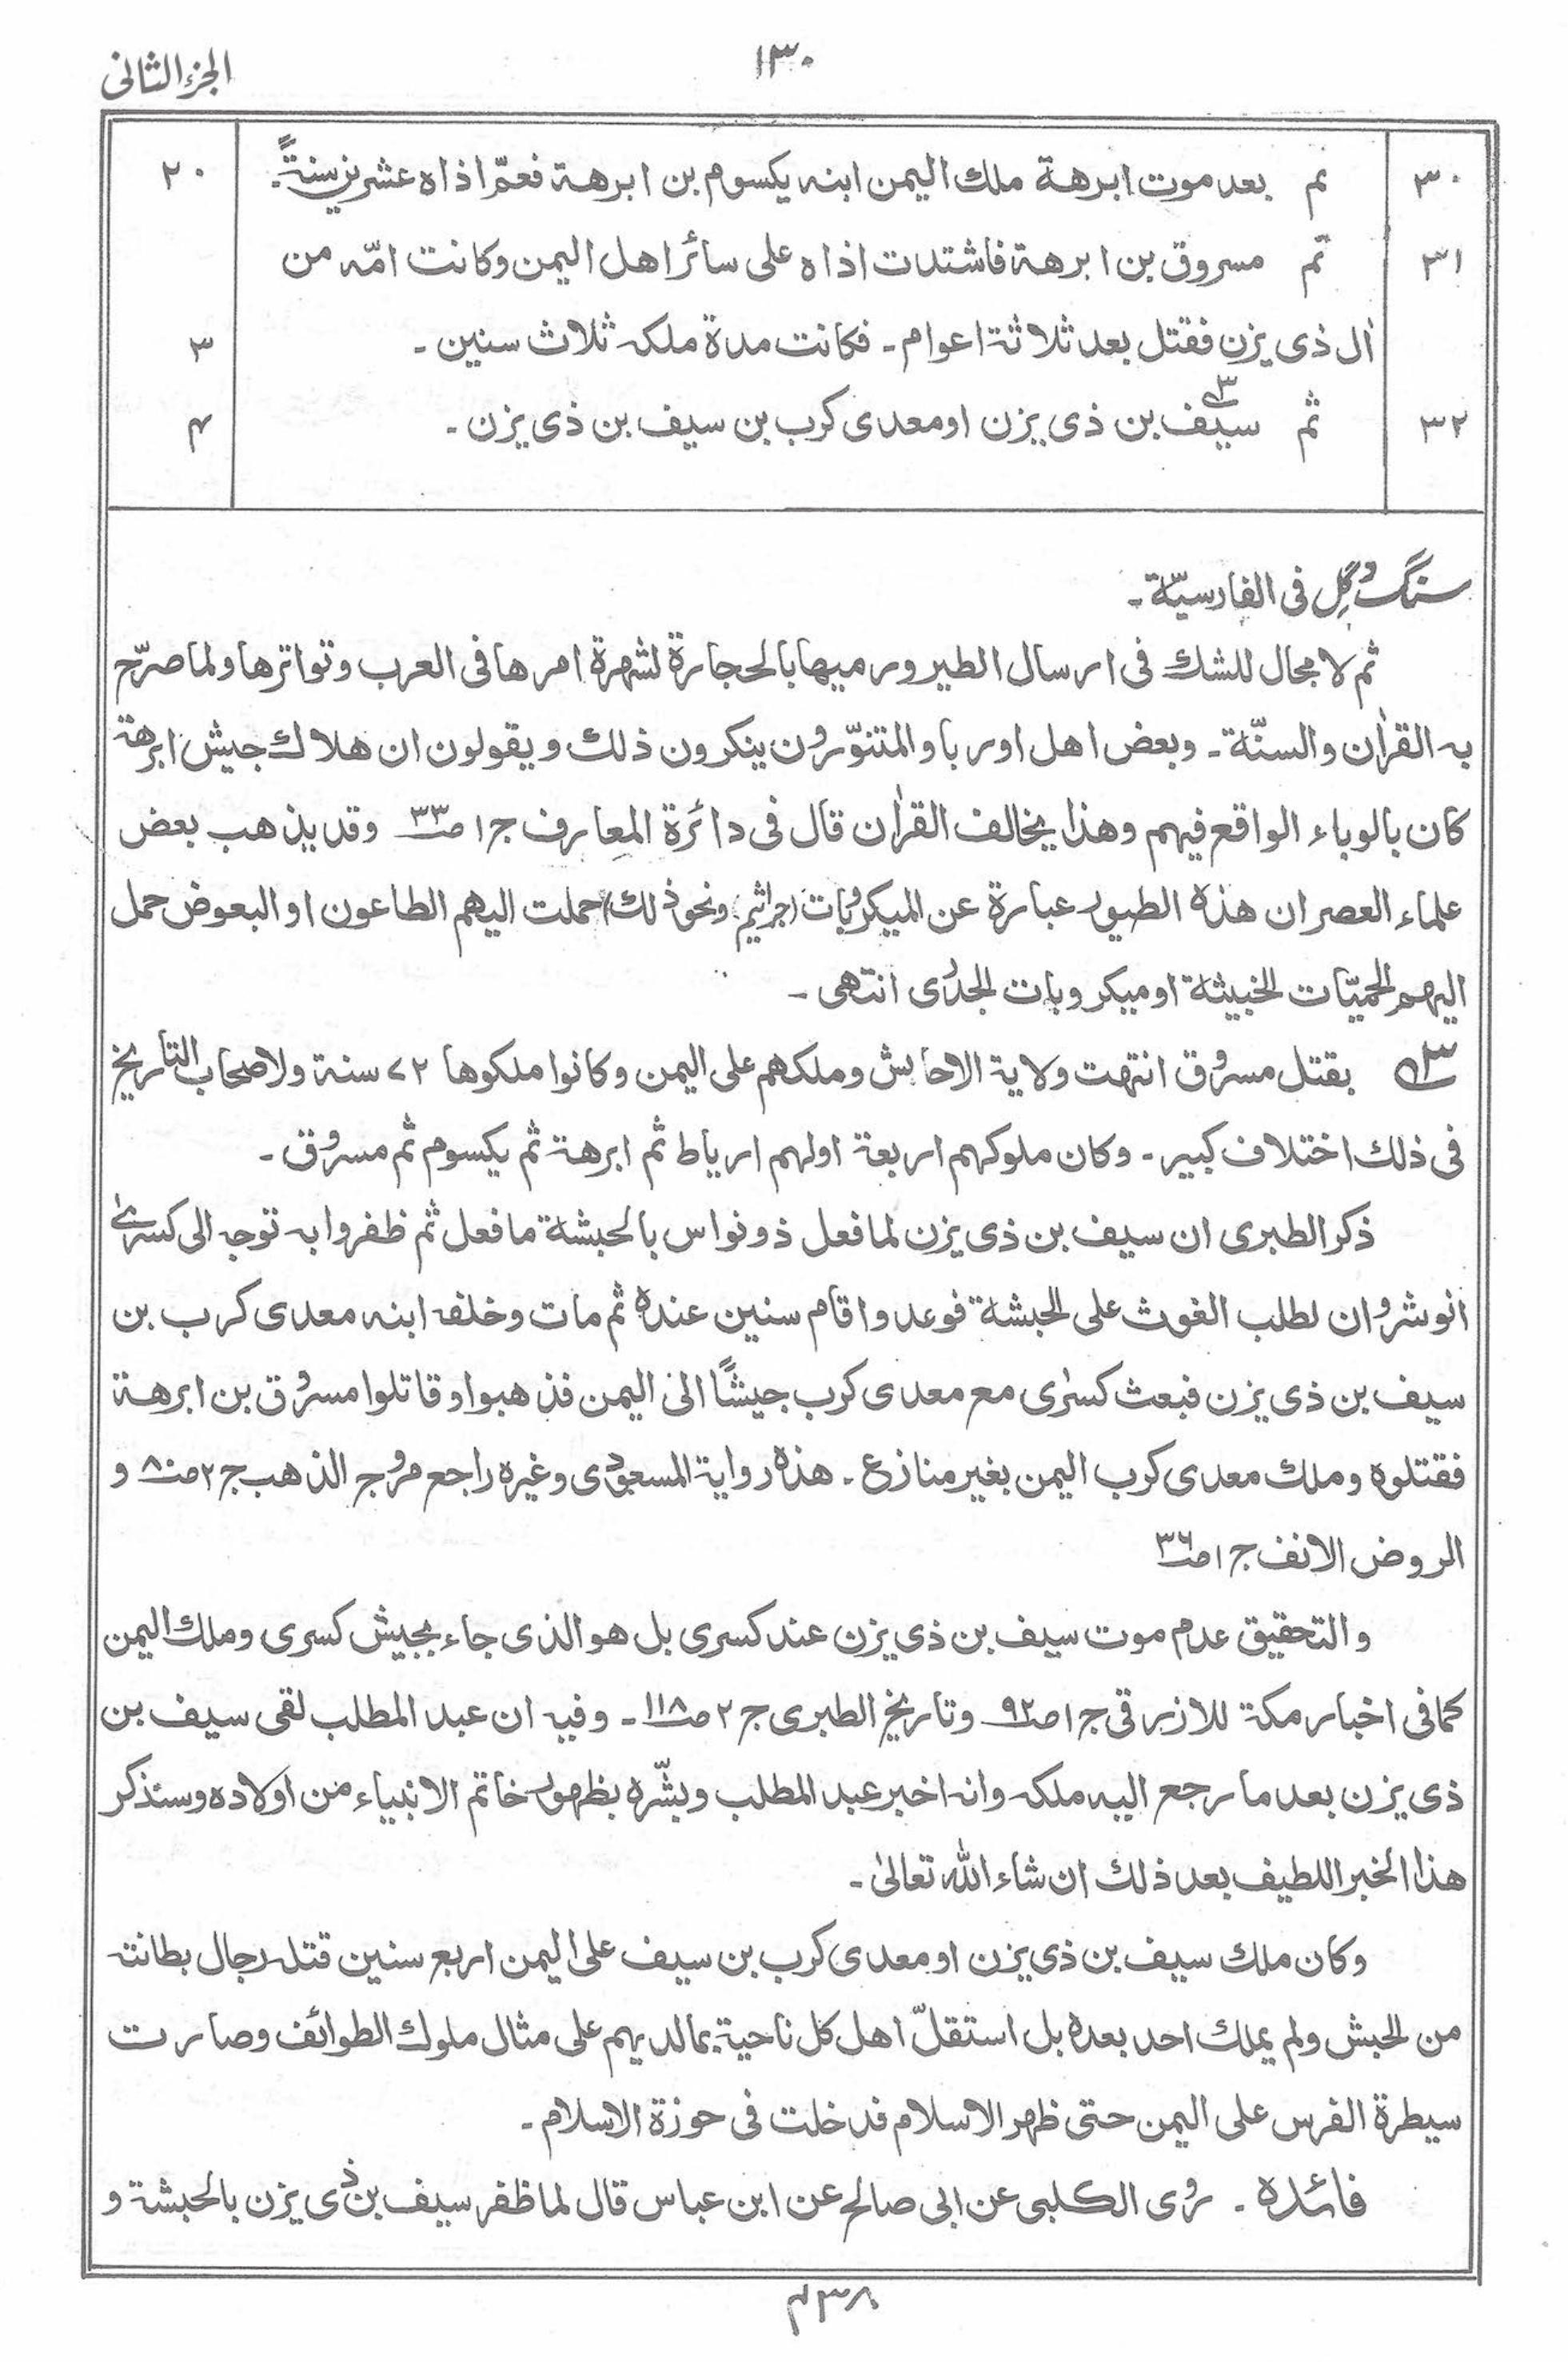 الجزء الثانی
۱۳۰
۳۰ ثم بعد موت ابرهة ملك الیمن ابنه یکسوم بن ابرهة فعمّ اذاه عشرین سنةً۔ ۲۰
۳۱ ثم مسروق بن ابرهة فاشتدت اذاه علی سائر اهل الیمن وکانت امّه من
اٰل ذی یزن فقتل بعد ثلاثة اعوام۔ فکانت مدة ملکه ثلاث سنین۔ ۳
۳۲ ثم سیف۳ بن ذی یزن او معدی کرب بن سیف بن ذی یزن۔ ۴
سنگ وگِل فی الفارسیّة۔
ثم لا مجال للشك فی ارسال الطیر ورمیها بالحجارة لشهرة امرها فی العرب وتواترها ولما صرّح
به القرٰان والسنّة۔ وبعض اهل اوربا والمتنوّرون ینکرون ذلك ویقولون ان هلاك جیش ابرهة
کان بالوباء الواقع فیهم وهذا یخالف القرٰان قال فی دائرة المعارف ج۱ ص۳۳ وقد یذهب بعض
علماء العصر ان هذه الطیور عبارة عن المیکروبات (جراثیم ونحو ذلك) حملت الیهم الطاعون او البعوض حمل
الیهم الحمیّات الخبیثة او میکروبات الجدری انتهی۔
۳ بقتل مسروق انتهت ولایة الاحابش وملکهم علی الیمن وکانوا ملکوها ۷۲ سنة ولاصحاب التاریخ
فی ذلك اختلاف کبیر۔ وکان ملوکهم اربعة اولهم اریاط ثم ابرهة ثم یکسوم ثم مسروق۔
ذکر الطبری ان سیف بن ذی یزن لما فعل ذونواس بالحبشة ما فعل ثم ظفروا به توجه الی کسرٰی
انوشروان لطلب الغوث علی الحبشة فوعد واقام سنین عنده ثم مات وخلفه ابنه معدی کرب بن
سیف بن ذی یزن فبعث کسرٰی مع معدی کرب جیشًا الی الیمن فذهبوا وقاتلوا مسروق بن ابرهة
فقتلوه وملك معدی کرب الیمن بغیر منازع۔ هذه روایة المسعودی وغیره راجع مروج الذهب ج۲ ص۸۰ و
الروض الانف ج۱ ص۳۶
والتحقیق عدم موت سیف بن ذی یزن عند کسری بل هو الذی جاء بجیش کسری وملك الیمن
کما فی اخبار مکة للازرقی ج۱ ص۹۲ وتاریخ الطبری ج۲ ص۱۱۸۔ وفیه ان عبد المطلب لقی سیف بن
ذی یزن بعد ما رجع الیه ملکه وانه اخبر عبد المطلب وبشّره بظهور خاتم الانبیاء من اولاده وسنذکر
هذا الخبر اللطیف بعد ذلك ان شاء الله تعالیٰ۔
وکان ملك سیف بن ذی یزن او معدی کرب بن سیف علی الیمن اربع سنین قتله رجال بطانته
من الحبش ولم یملك احد بعده بل استقلّ اهل کل ناحیة بما لدیهم علی مثال ملوك الطوائف وصارت
سیطرة الفرس علی الیمن حتی ظهر الاسلام فدخلت فی حوزة الاسلام۔
فائده۔ روی الکلبی عن ابی صالح عن ابن عباس قال لما ظفر سیف بن ذی یزن بالحبشة و
۴۳۸